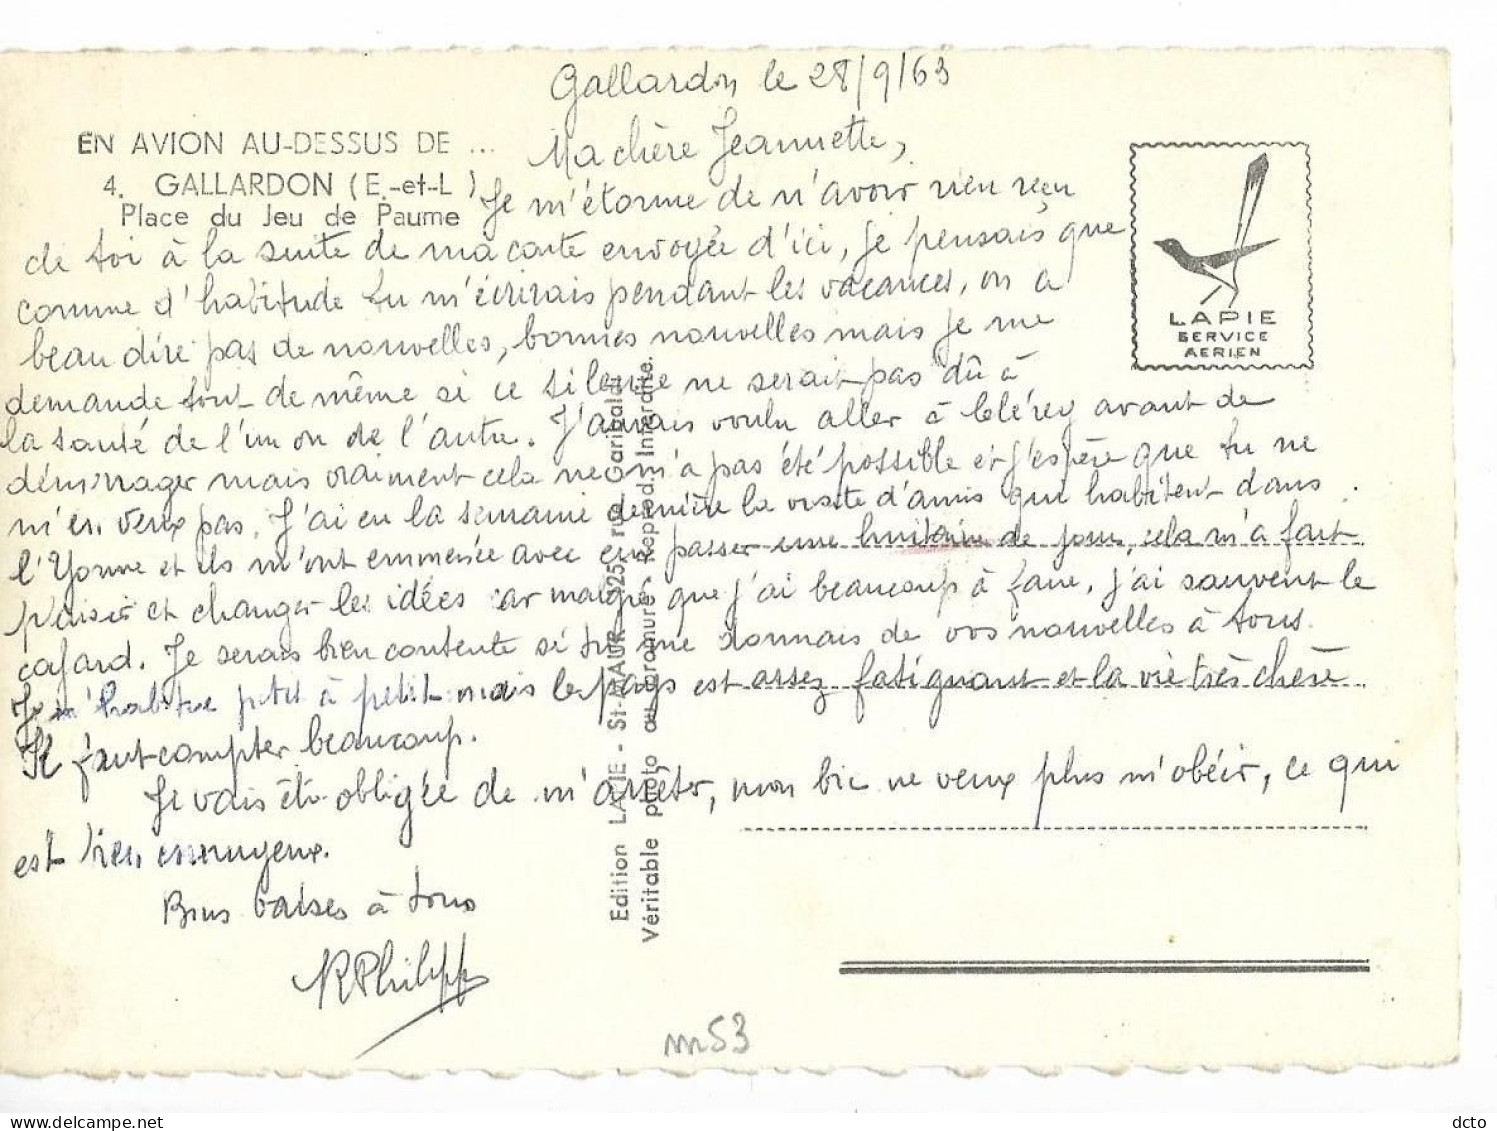 Gallardon le 28/9/63
EN AVION AU-DESSUS DE ...
4. GALLARDON (E.-et-L.)
Place du Jeu de Paume
Ma chère Jeannette,
Je m'étonne de n'avoir rien reçu
de toi à la suite de ma carte envoyée d'ici, je pensais que
comme d'habitude tu m'écrirais pendant les vacances, on a
beau dire pas de nouvelles, bonnes nouvelles mais je me
demande tout de même si ce silence ne serait pas dû à
la santé de l'un ou de l'autre. J'aurais voulu aller à Clérey avant de
déménager mais vraiment cela ne m'a pas été possible et j'espère que tu ne
m'en veux pas. J'ai eu la semaine dernière la visite d'amis qui habitent dans
l'Yonne et ils m'ont emmenée avec eux passer une huitaine de jours, cela m'a fait
plaisir et changer les idées car malgré que j'ai beaucoup à faire, j'ai souvent le
cafard. Je serais bien contente si tu me donnais de vos nouvelles à tous.
Je m'habitue petit à petit mais le pays est assez fatigant et la vie très chère
Il faut compter beaucoup.
Je vais être obligée de m'arrêter, mon bic ne veux plus m'obéir, ce qui
est bien ennuyeux.
Bons baises à tous
RPhilipp
LAPIE
SERVICE
AERIEN
Edition LAPIE - St-MAUR - 925, rue Garibaldi
Véritable photo au bromure - Reprod. Interdite.
m53
dcto